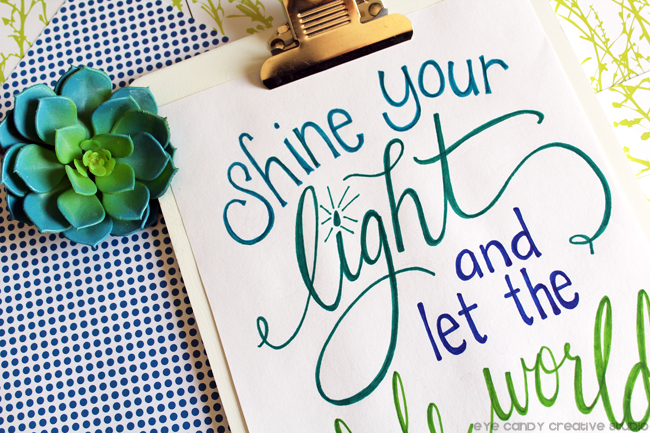 Shine your
light
and
let the
world
EYE CANDY CREATIVE STUDIO